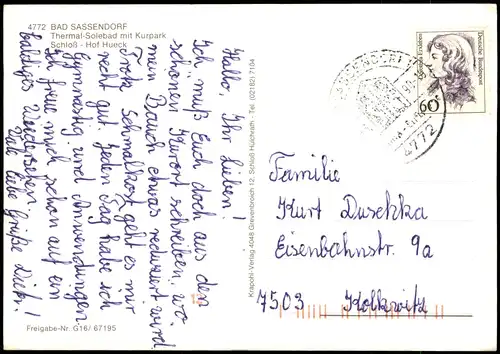 4772 BAD SASSENDORF
Thermal-Solebad mit Kurpark
Schloß - Hof Hueck
Hallo, Ihr Lieben!
Ich muß Euch doch aus den
schönen Kurort schreiben, wo
mein Bauch etwas reduziert wird.
Trotz Schmalkost geht es mir
recht gut. Jeden Tag habe ich
Gymnastik und Anwendungen
Ich freue mich schon auf ein
baldiges Wiedersehen.
Viele liebe Grüße Dieter!
Freigabe-Nr. G16/ 67195
Krapohl-Verlag 4048 Grevenbroich 12, Schloß Hülchrath - Tel. (02182) 7104
SASSENDORF 1
4772
Deutsche Bundespost
60
Familie
Kurt Duschka
Eisenbahnstr. 9a
7503 Kolkwitz